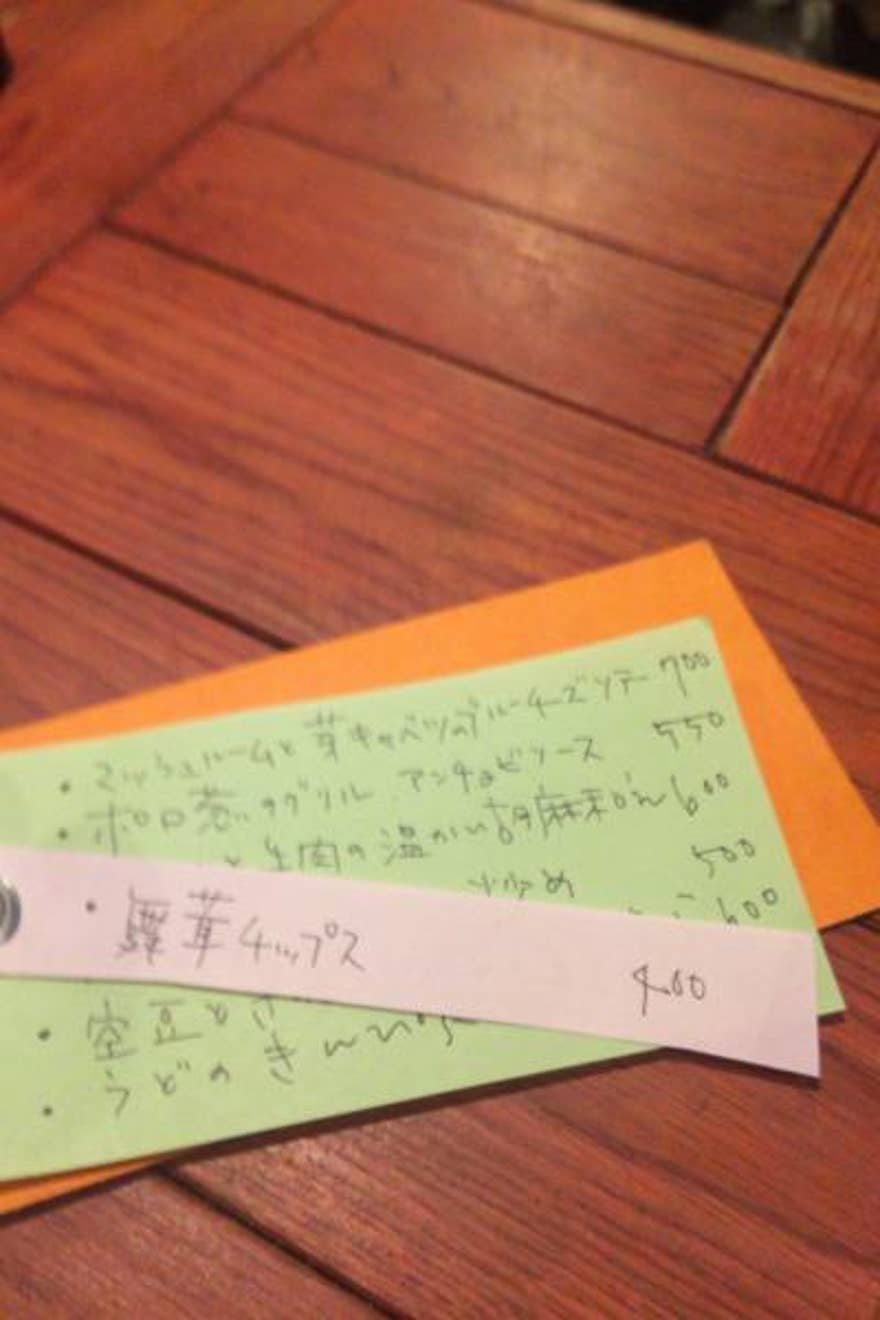 ・マッシュルームと芽キャベツのブルーチーズソテー 700
・ポロ葱のグリル アンチョビソース 550
と生肉の温かい胡麻 600
炒め 500
600
・舞茸チップス 400
・空豆と
・うどのきんぴら